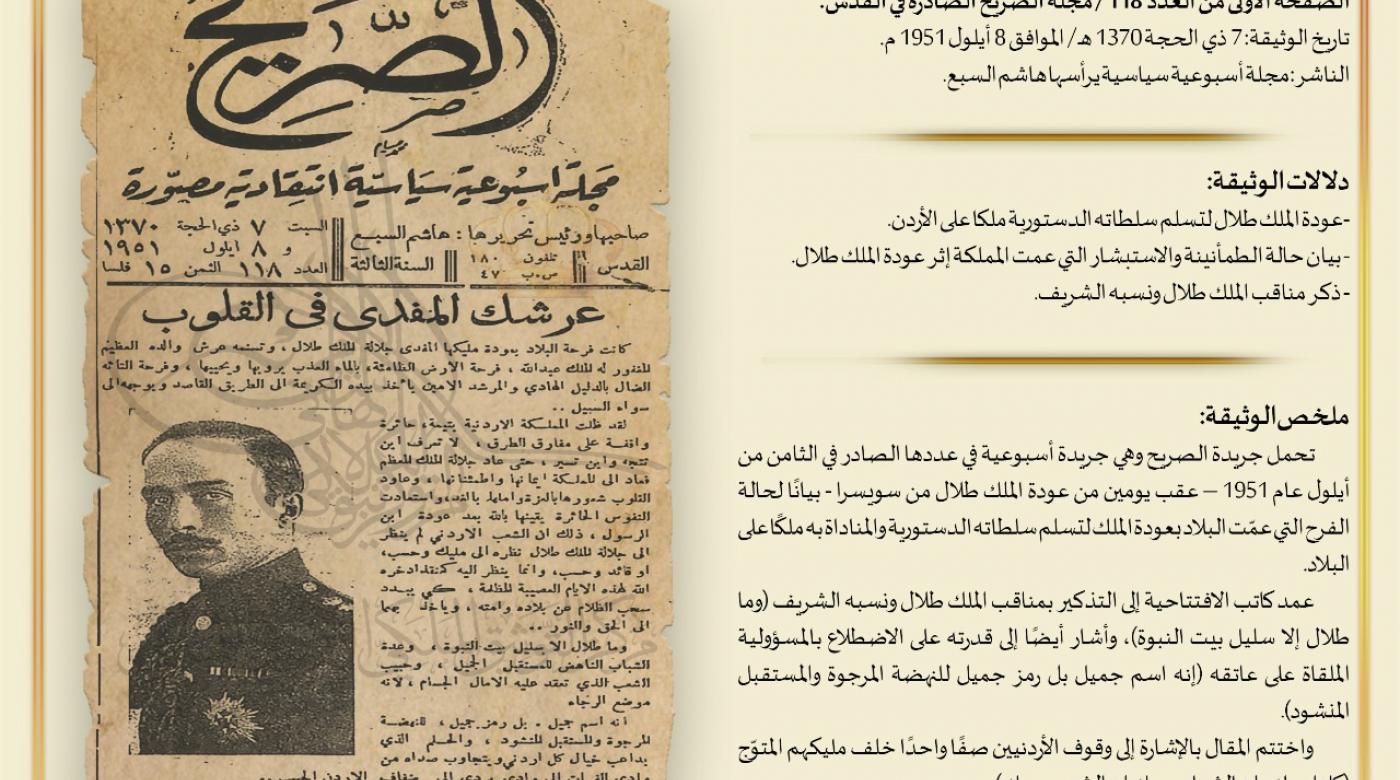 الصفحة الأولى من العدد 118 / مجلة الصريح الصادرة في القدس.
تاريخ الوثيقة: 7 ذي الحجة 1370 هـ/ الموافق 8 أيلول 1951 م.
الناشر: مجلة أسبوعية سياسية يرأسها هاشم السبع.
دلالات الوثيقة:
-عودة الملك طلال لتسلم سلطاته الدستورية ملكا على الأردن.
-بيان حالة الطمأنينة والاستبشار التي عمت المملكة إثر عودة الملك طلال.
-ذكر مناقب الملك طلال ونسبه الشريف.
ملخص الوثيقة:
تحمل جريدة الصريح وهي جريدة أسبوعية في عددها الصادر في الثامن من
أيلول عام 1951 – عقب يومين من عودة الملك طلال من سويسرا - بيانًا لحالة
الفرح التي عمّت البلاد بعودة الملك لتسلم سلطاته الدستورية والمناداة به ملكًا على
البلاد.
عمد كاتب الافتتاحية إلى التذكير بمناقب الملك طلال ونسبه الشريف (وما
طلال إلا سليل بيت النبوة)، وأشار أيضًا إلى قدرته على الاضطلاع بالمسؤولية
الملقاة على عاتقه (إنه اسم جميل بل رمز جميل للنهضة المرجوة والمستقبل
المنشود).
واختتم المقال بالإشارة إلى وقوف الأردنيين صفًا واحدًا خلف مليكهم المتوّج
الصريح
مجلة اسبوعية سياسية انتقادية مصورة
صاحبها ورئيس تحريرها : هاشم السبع
القدس
تلفون ١٨٠
ص.ب ٤٧
السنة الثالثة
السبت ٧ ذي الحجة ١٣٧٠
و ٨ ايلول ١٩٥١
العدد ١١٨ الثمن ١٥ فلسا
عرشك المفدى فى القلوب
كانت فرحة البلاد بعودة مليكها المفدى جلالة الملك طلال ، وتسنمه عرش والده العظيم
المغفور له الملك عبدالله ، فرحة الارض الظامئة، بالماء العذب يرويها ويحييها ، وفرحة التائه
الضال بالدليل الهادي والمرشد الامين يأخذ بيده الكريمة الى الطريق القاصد ويوجهه الى
سواء السبيل ..
لقد ظلت المملكة الاردنية يتيمة، حائرة
واقفة على مفارق الطرق ، لا تعرف اين
تتجه واين تسير ، حتى عاد جلالة الملك المعظم
فعاد الى المملكة ايمانها واطمئنانها ، وعاود
القلوب شعورها بالعزة واملها بالغد، واستعادت
النفوس الحائرة يقينها بالله بعد عودة ابن
الرسول ، ذلك ان الشعب الاردني لم ينظر
الى جلالة الملك طلال نظره الى مليك وحسب،
او قائد وحسب، وانما ينظر اليه كمنقذ ادخره
الله لهذه الايام العصيبة المظلمة ، كي يبدد
سحب الظلام عن بلاده وامته ، ويأخذ بهما
الى الحق والنور ..
وما طلال الا سليل بيت النبوة ، وعدة
الشباب الناهض للمستقبل الجميل ، وحبيب
الشعب الذي تعقد عليه الامال الجسام ، لانه
موضع الرجاء
انه اسم جميل . بل رمز جميل ، للنهضة
المرجوة والمستقبل المنشود ، والحلم الذي
يداعب خيال كل اردني ويتجاوب صداه من